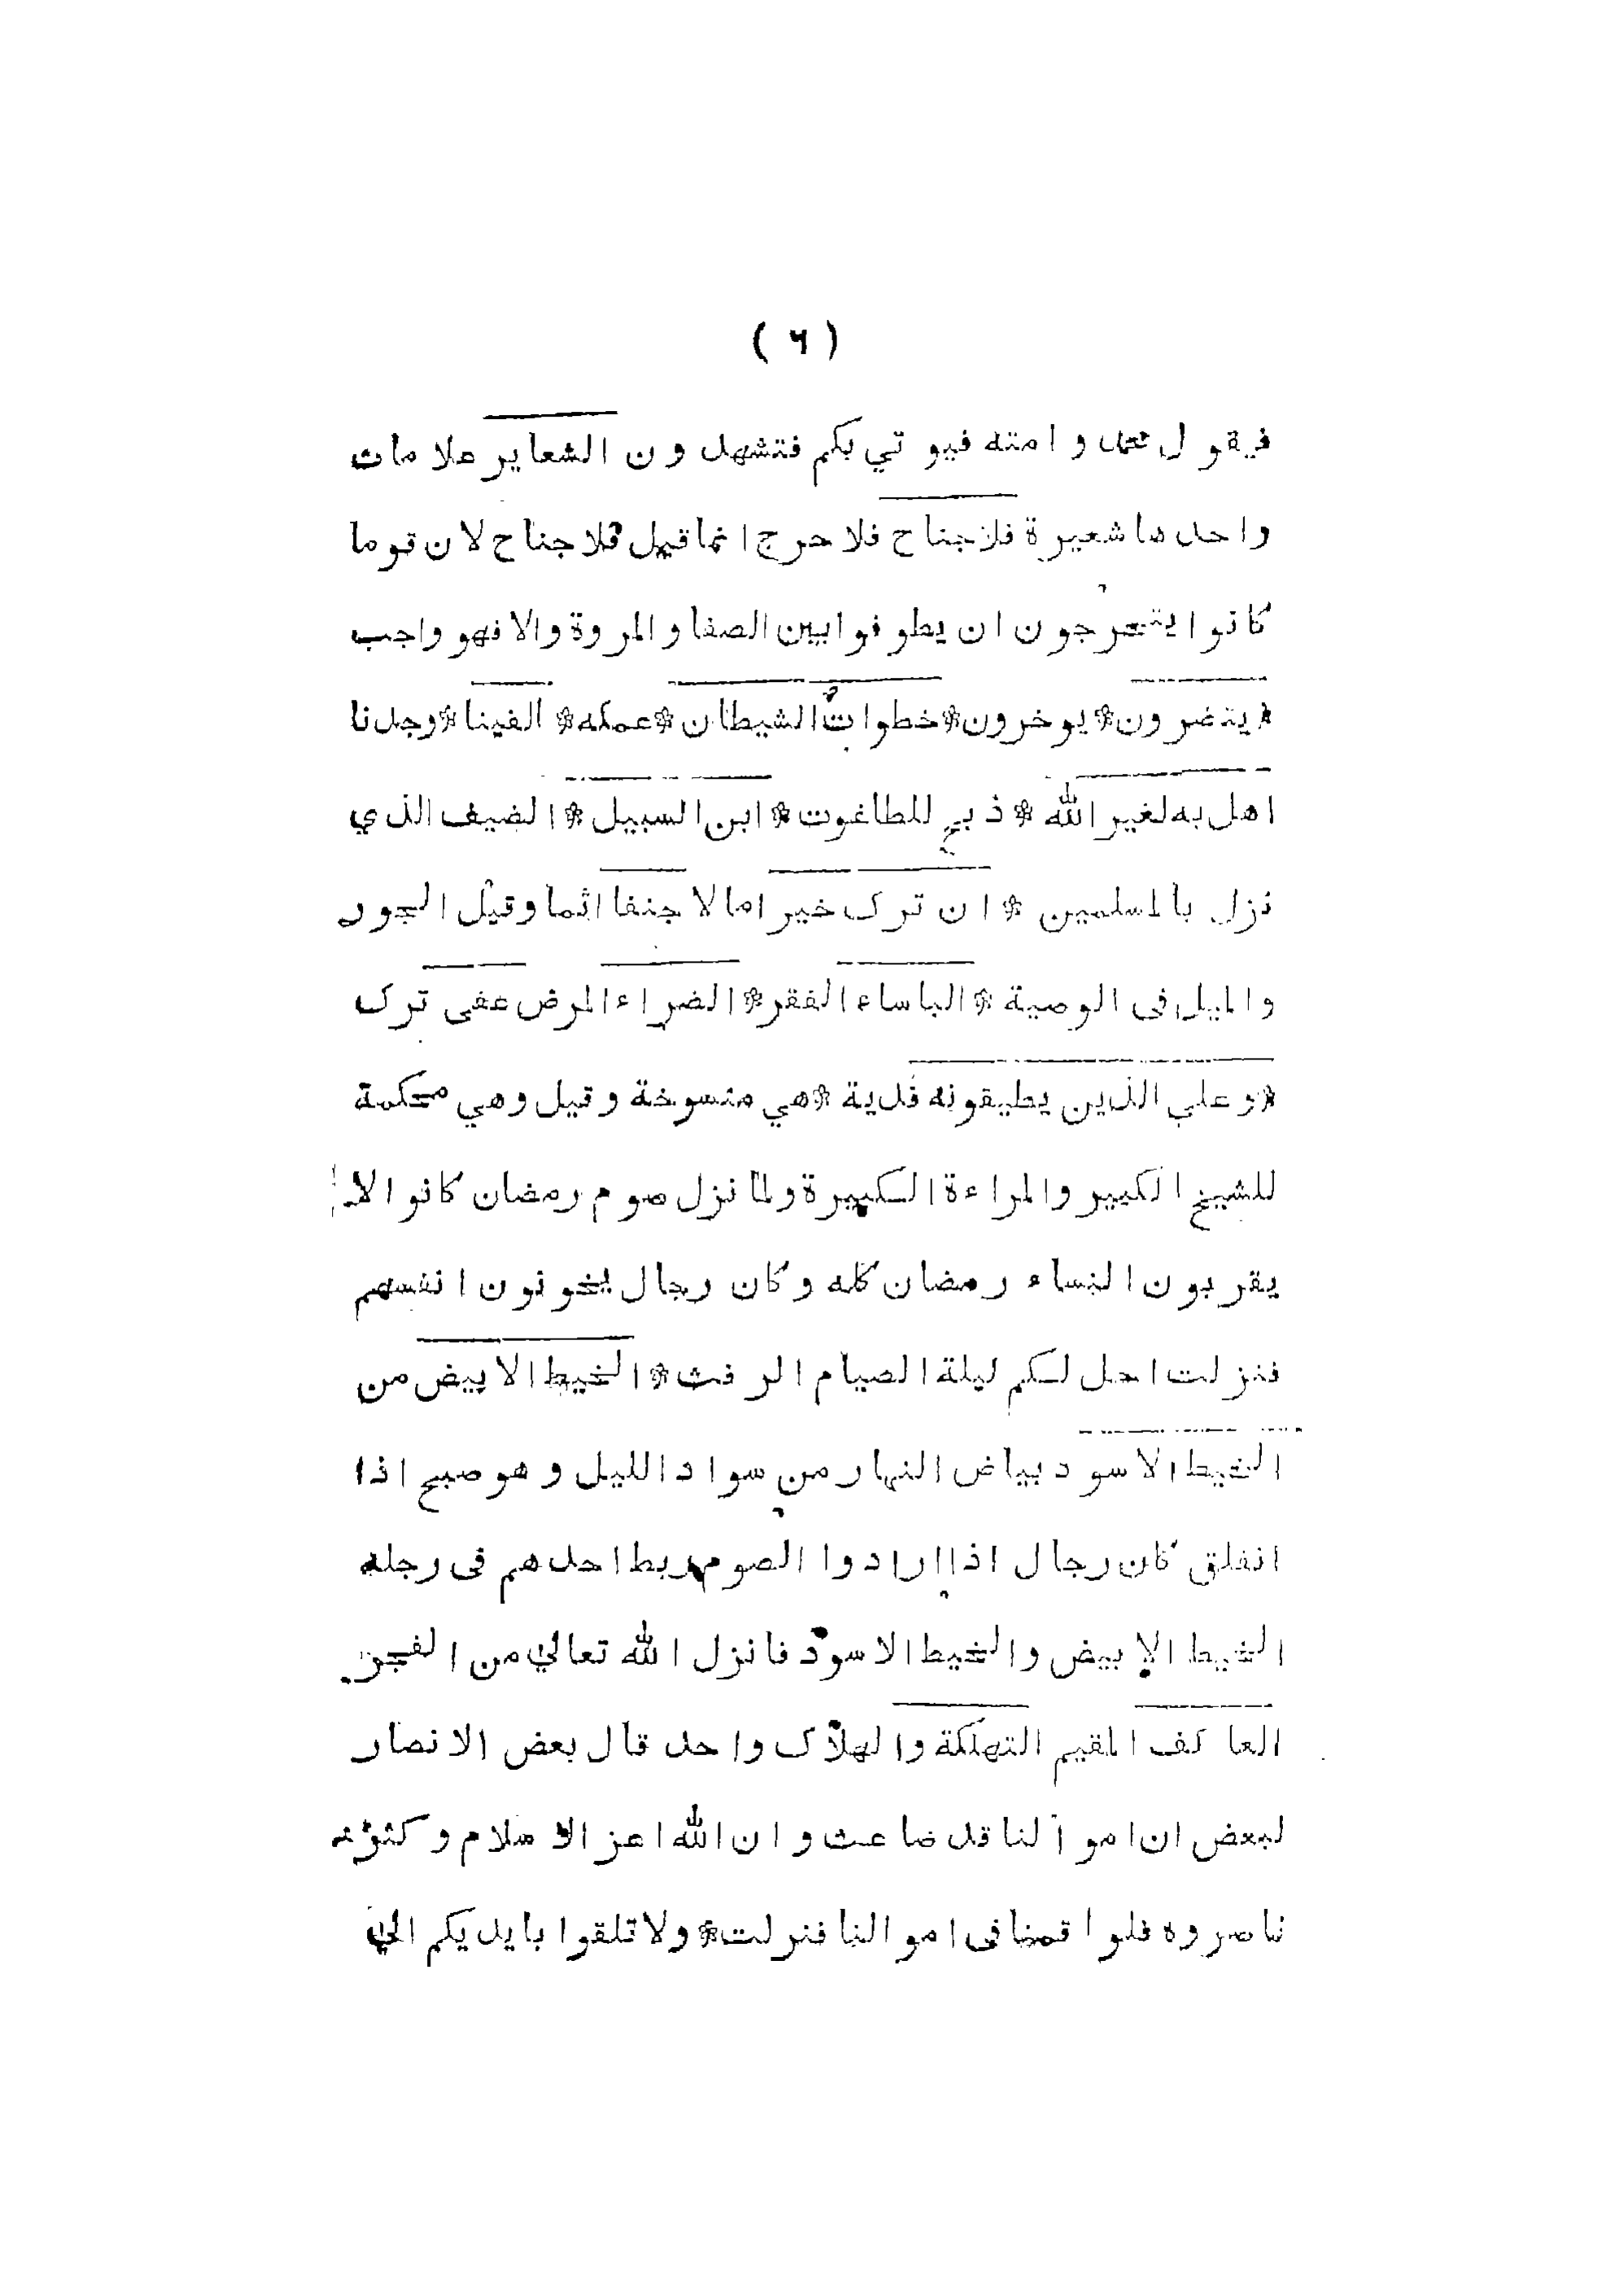 ( ٦ )
فيقول محمد وامته فيوتي بكم فتشهدون الشعاير علامات
واحدها شعيرة فلاجناح فلا حرج انما قيل فلا جناح لان قوما
كانوا يتحرجون ان يطوفوا بين الصفا والمروة والا فهو واجب
* ينضرون * يوخرون * خطوات الشيطان * عمله * الفينا * وجدنا
اهل به لغير الله * ذبح للطاغوت * ابن السبيل * الضيف الذي
نزل بالمسلمين * ان ترك خيرا مالا جنفا اثما وقيل الجور
والميل فى الوصية * الباساء الفقر * الضراء المرض عفى ترك
* وعلي الذين يطيقونه فدية * هي منسوخة وقيل وهي محكمة
للشيخ الكبير والمراءة الكبيرة ولما نزل صوم رمضان كانوا لا
يقربون النساء رمضان كله وكان رجال يخونون انفسهم
فنزلت احل لكم ليلة الصيام الرفث * الخيط الابيض من
الخيط الاسود بياض النهار من سواد الليل وهو صبح اذا
انفلق كان رجال اذا ارادوا الصوم ربط احدهم فى رجله
الخيط الابيض والخيط الاسود فانزل الله تعالي من الفجر
العاكف المقيم التهلكة والهلاك واحد قال بعض الانصار
لبعض ان اموالنا قد ضاعت وان الله اعز الاسلام وكثر
ناصروه فلو اقمنا فى اموالنا فنزلت * ولا تلقوا بايديكم الي